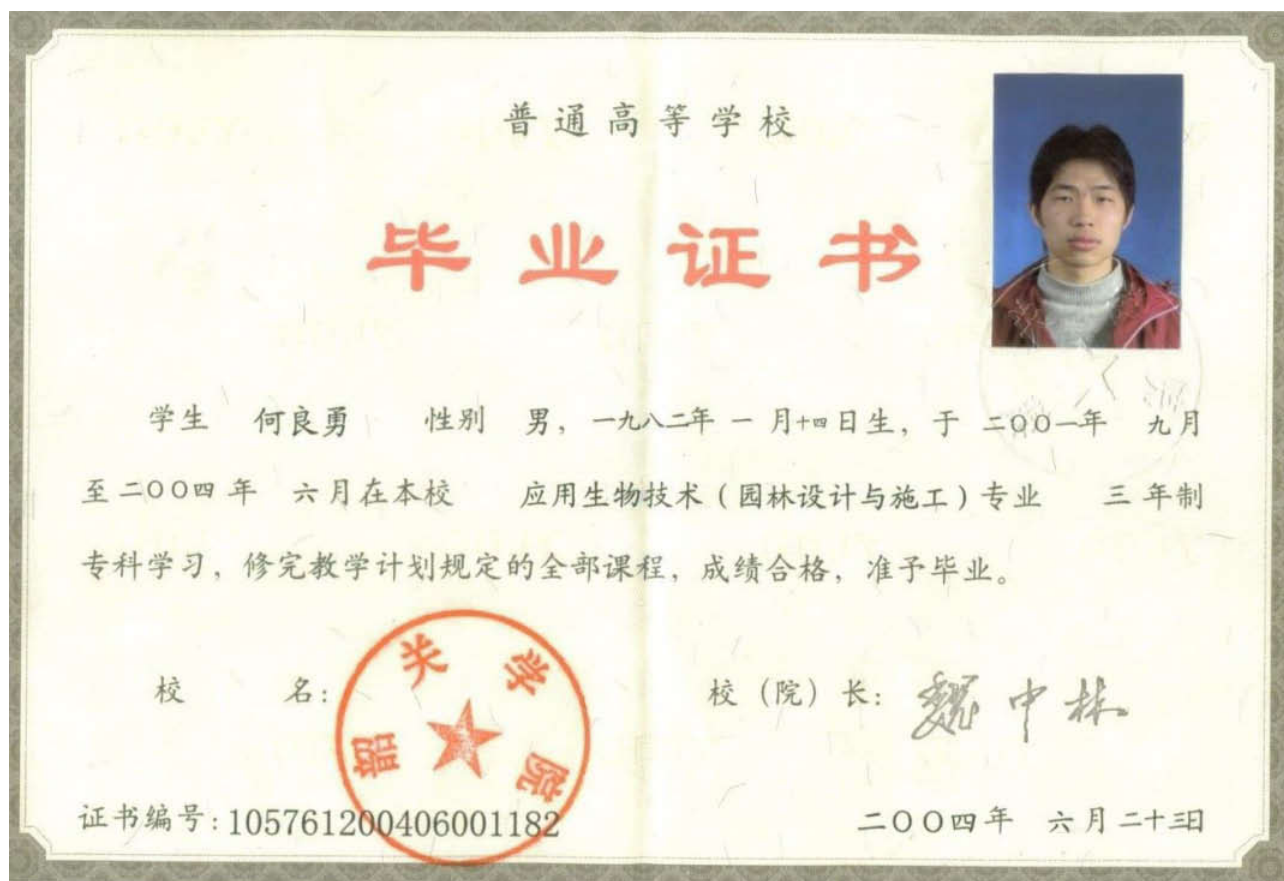 普通高等学校
毕业证书
学生 何良勇 性别 男，一九八二年 一 月十四日生，于 二〇〇一年 九月
至二〇〇四 年 六月在本校 应用生物技术（园林设计与施工）专业 三 年制
专科学习，修完教学计划规定的全部课程，成绩合格，准予毕业。
校 名：
韶关学院
校（院）长：魏中林
证书编号：105761200406001182
二〇〇四年 六月二十三日